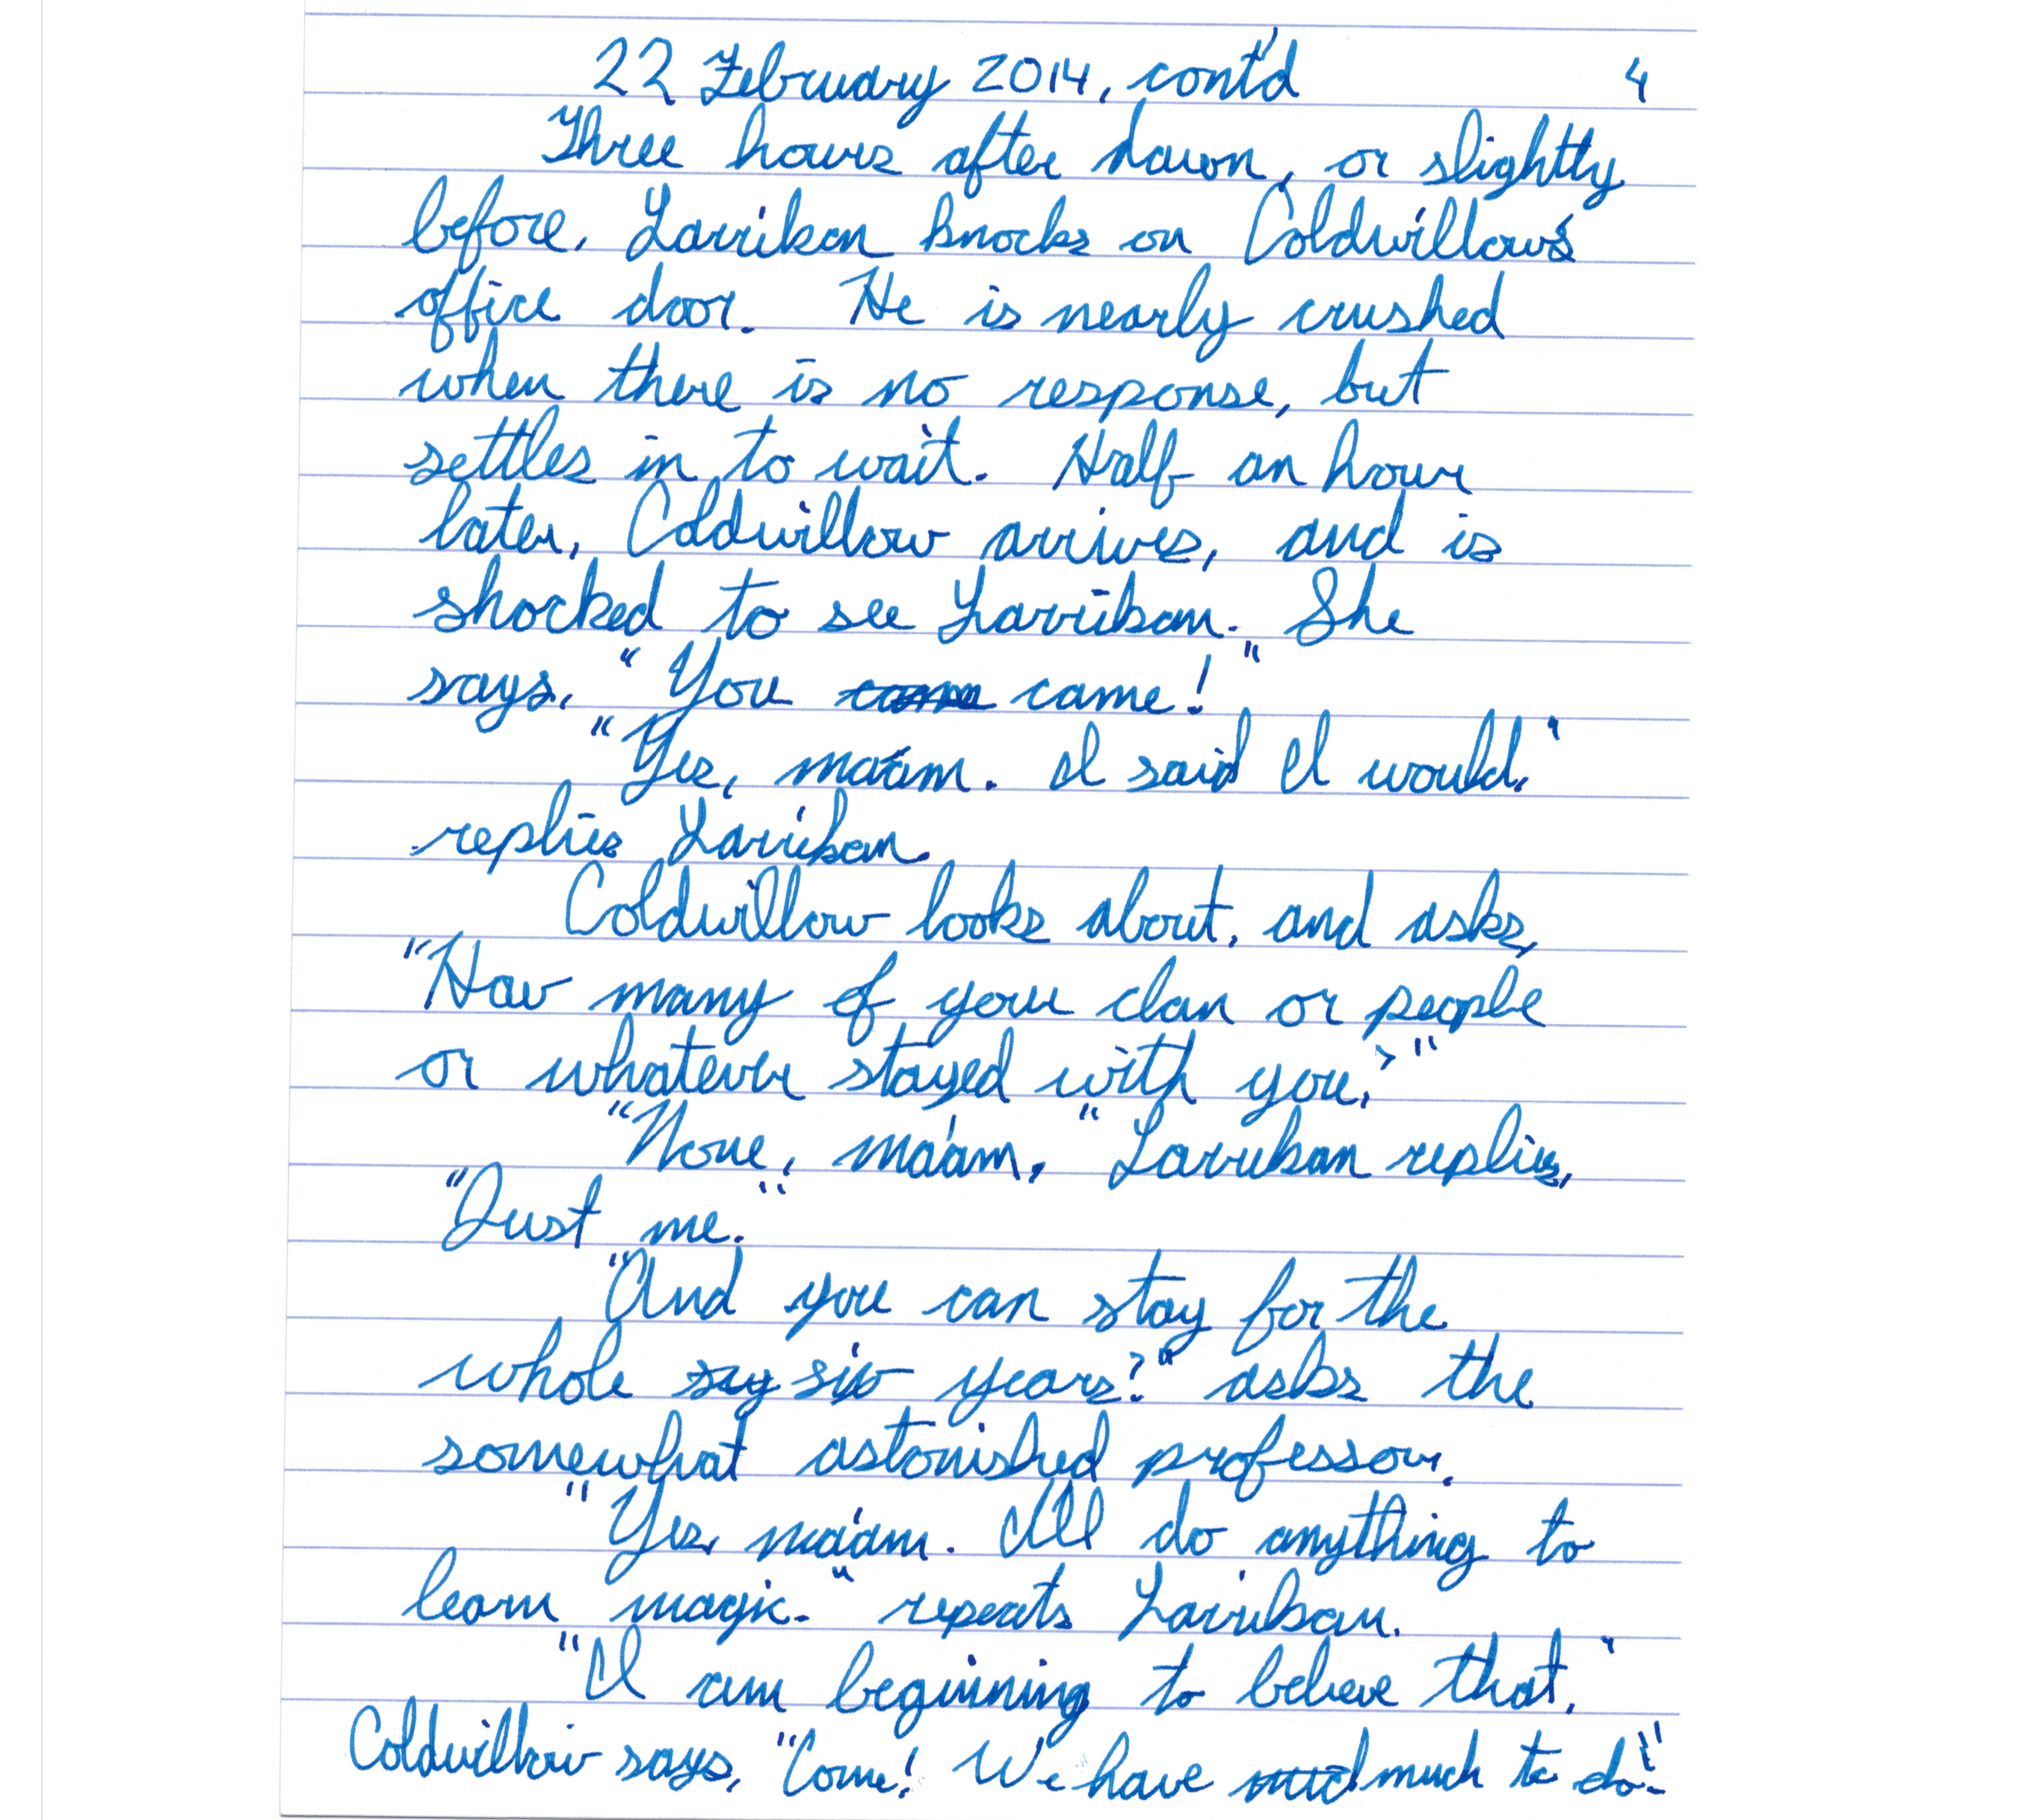 22 February 2014, cont'd 4
Three hours after dawn, or slightly
before, Larrikan knocks on Coldwillow's
office door. He is nearly crushed
when there is no response, but
settles in to wait. Half an hour
later, Coldwillow arrives, and is
shocked to see Larrikan. She
says, "You came!"
"Yes, ma'am. I said I would,"
replies Larrikan.
Coldwillow looks about, and asks,
"How many of your clan or people
or whatever stayed with you?"
"None, ma'am," Larrikan replies,
"Just me."
"And you can stay for the
whole say six years?" asks the
somewhat astonished professor.
"Yes, ma'am. I'll do anything to
learn magic." repeats Larrikan.
"I am beginning to believe that,"
Coldwillow says, "Come! We have much to do!"